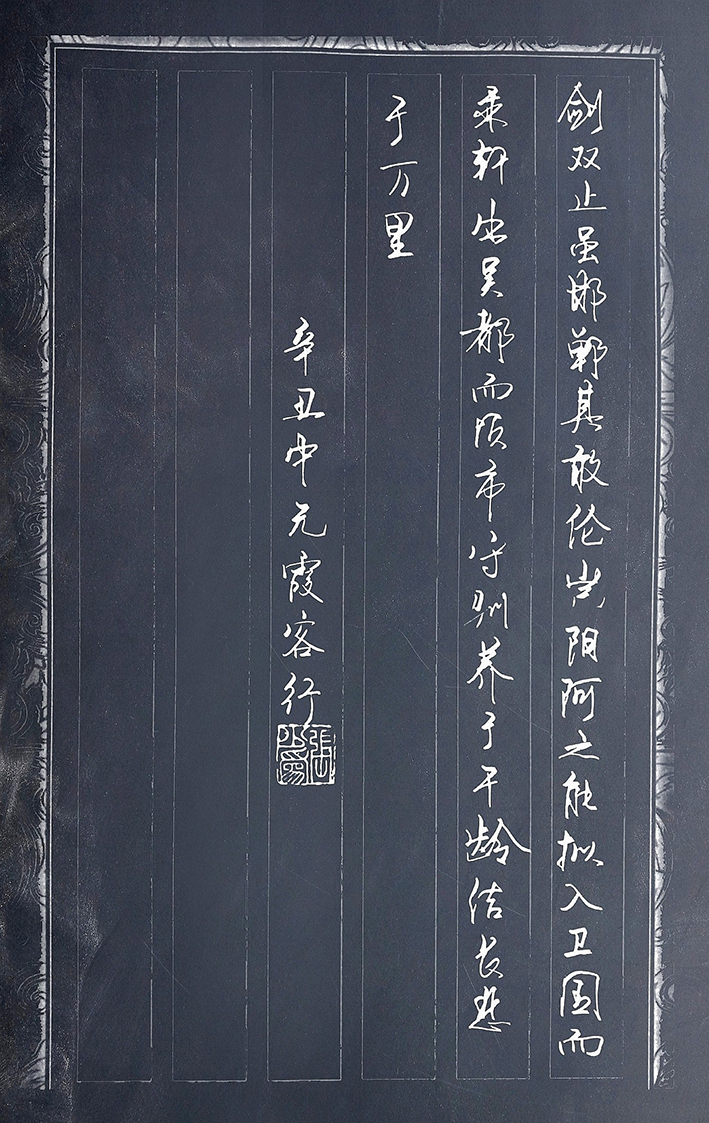 剑双止虽邯郸其敢伦岂阳阿之能拟入卫国而
乘轩出吴都而倾市守驯养于千龄结长悲
于万里
辛丑中元霞客行